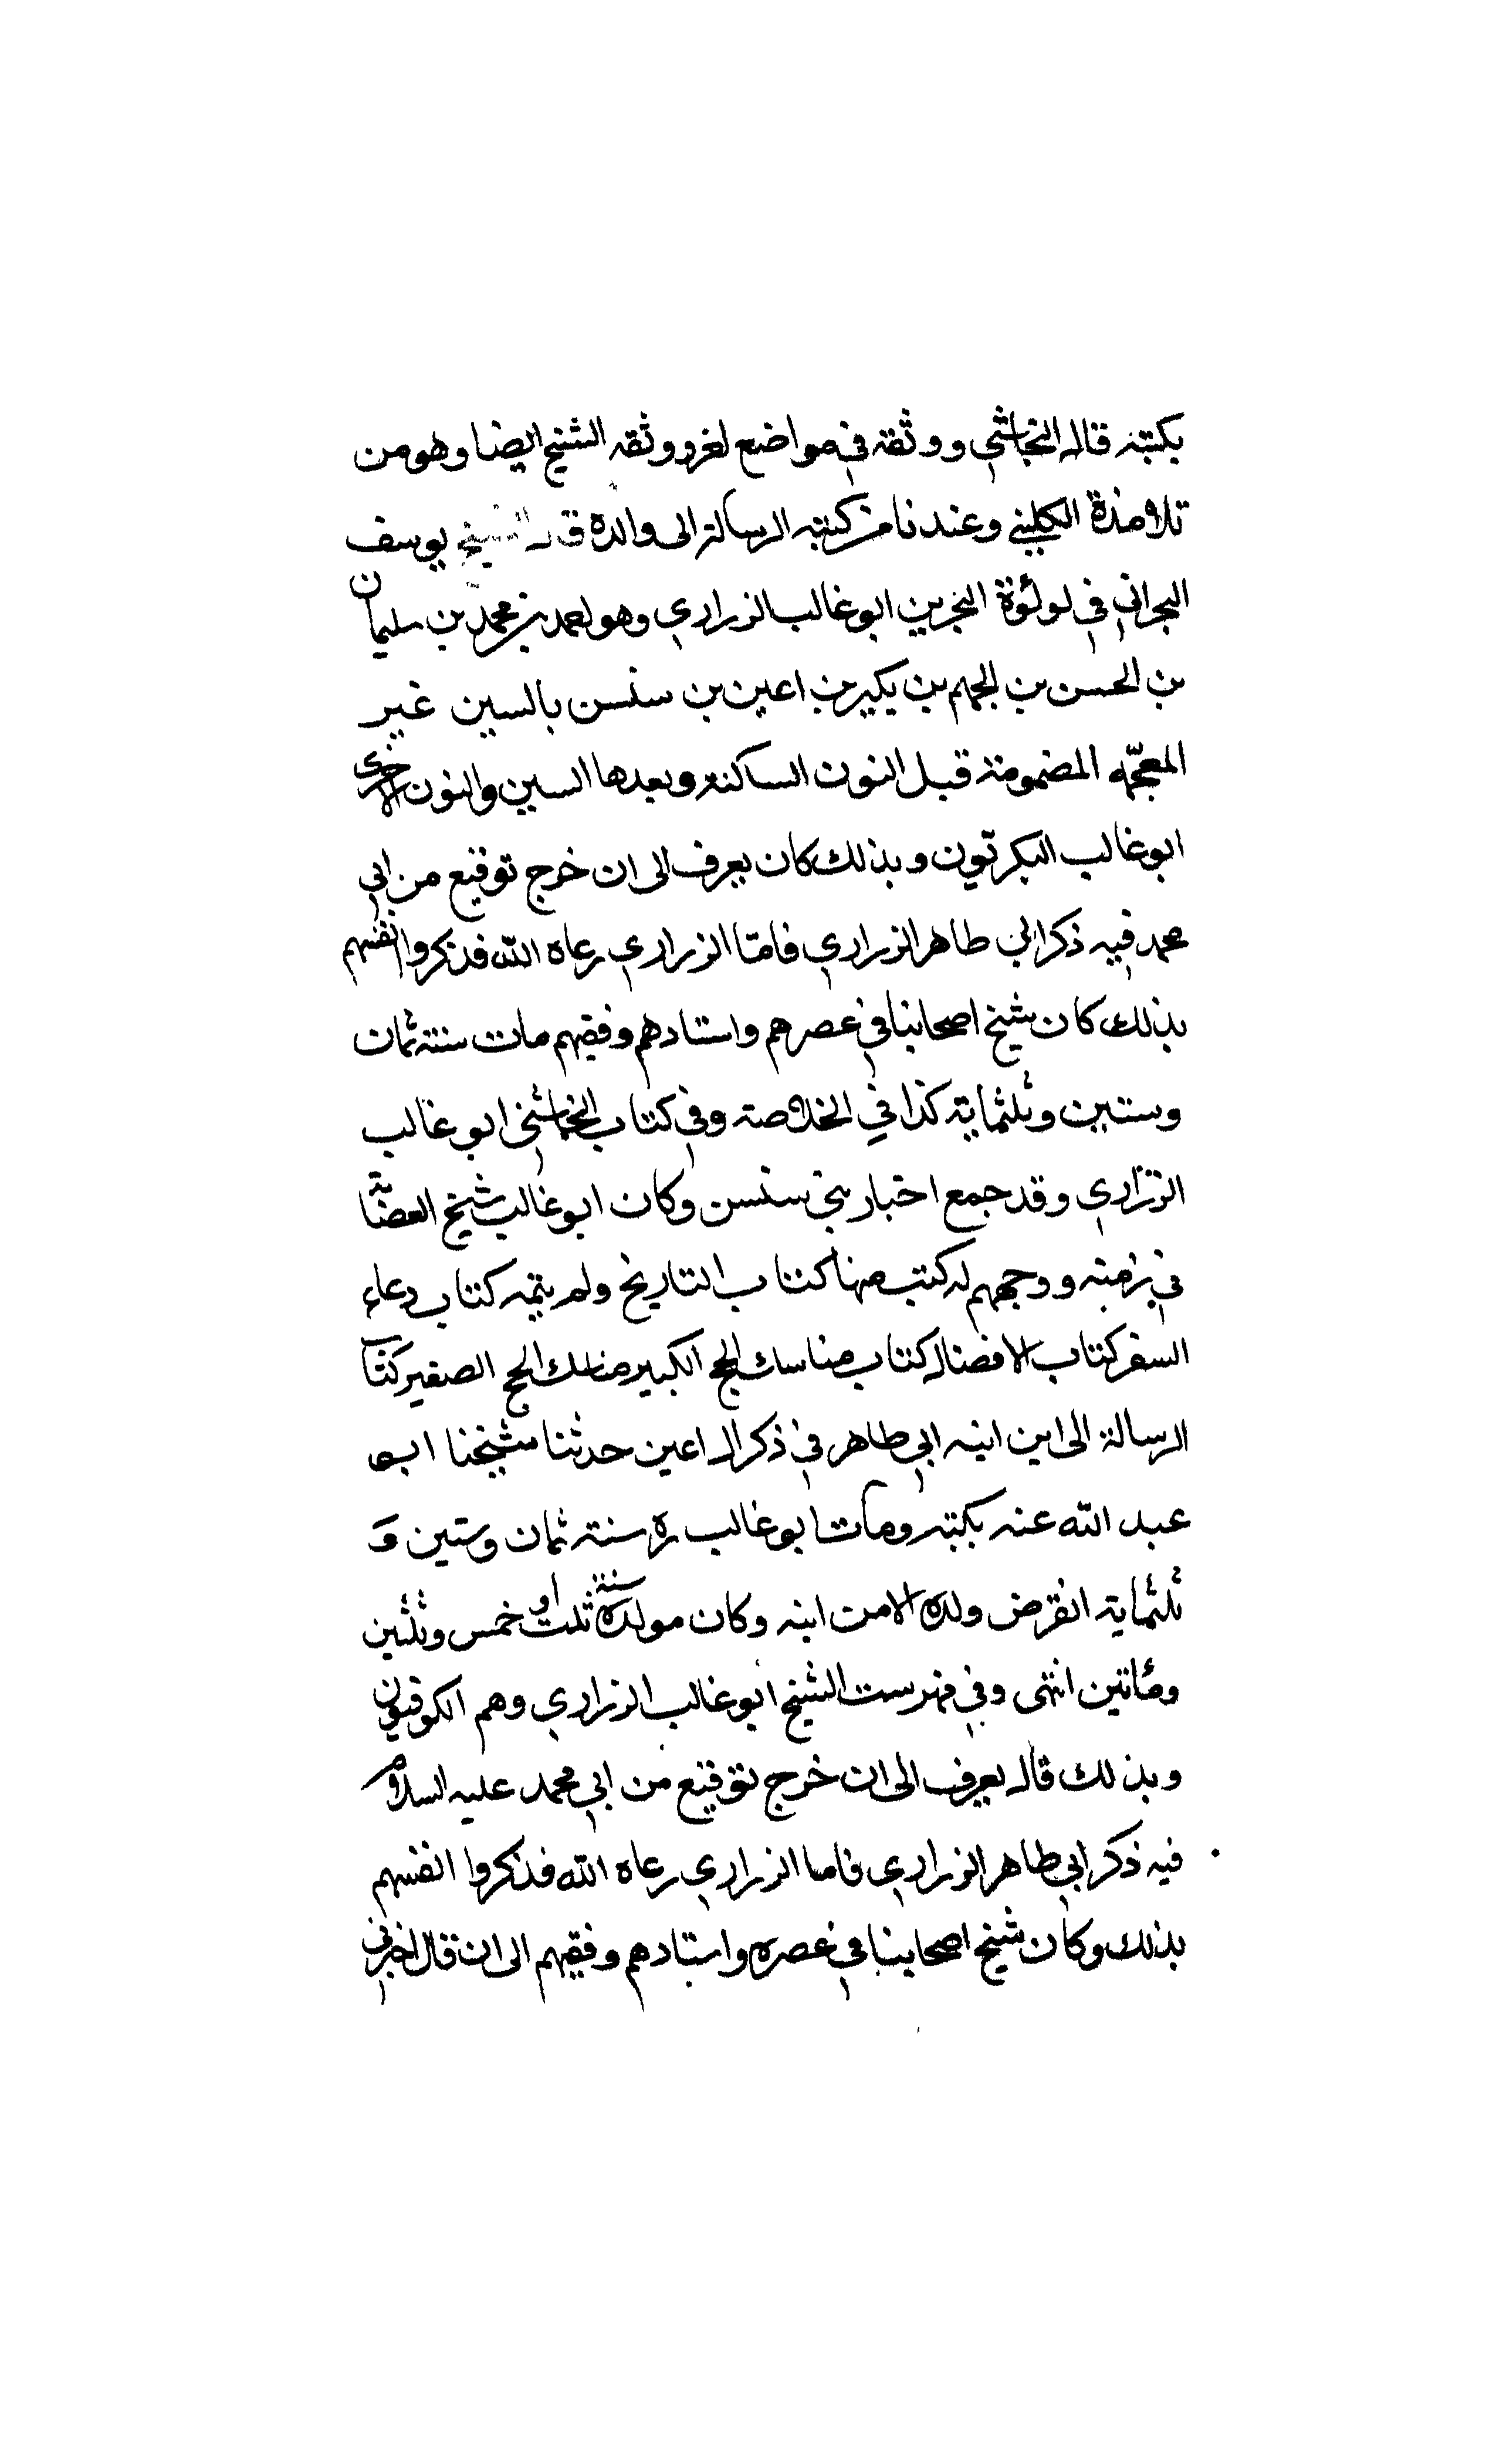 بكتبه قاله النجاشي ووثقه في مواضع اخر ووثقه الشيخ ايضا وهو من
تلامذة الكليني وعندنا من كتبه الرسالة الى والده الشيخ يوسف
البحراني في لولؤة البحرين ابو غالب الزراري وهو احمد بن محمد بن سليمان
بن الحسن بن الجهم بن بكير بن اعين بن سنسن بالسين غير
المعجمه المضمومة قبل النون الساكنة وبعدها السين والنون الاخرى
ابو غالب البكريون وبذلك كان يعرف الى ان خرج توقيع من ابي
محمد فيه ذكر ابي طاهر الزراري فامّا الزراري رعاه اللّه فذكروا انفسهم
بذلك كان شيخ اصحابنا في عصرهم واستادهم وفقيههم مات سنة ثمان
وستين وثلثماية كذا في الخلاصة وفي كتاب النجاشي ابو غالب
الزراري وقد جمع اخبار بني سنسن وكان ابو غالب شيخ العصابة
في زمنه ووجههم له كتب منها كتاب التاريخ ولم يتمه كتاب دعاء
السفر كتاب الافضال كتاب مناسك الحج الكبير مناسك الحج الصغير كتاب
الرسالة الى ابن ابنه ابي طاهر في ذكر ال اعين حدثنا شيخنا ابو
عبد اللّه عنه بكتبه ومات ابو غالب ره سنة ثمان وستين و
ثلثماية انقرض ولده الا من ابنه وكان مولده سنة ثلث او خمس وثلثين
ومأتين انتهى وفي فهرست الشيخ ابو غالب الزراري وهم الكوفيون
وبذلك قال يعرف الى ان خرج توقيع من ابي محمد عليه السلام
فيه ذكر ابي طاهر الزراري فاما الزراري رعاه اللّه فذكروا انفسهم
بذلك وكان شيخ اصحابنا في عصره واستادهم وفقيههم الى ان قال اخبرني